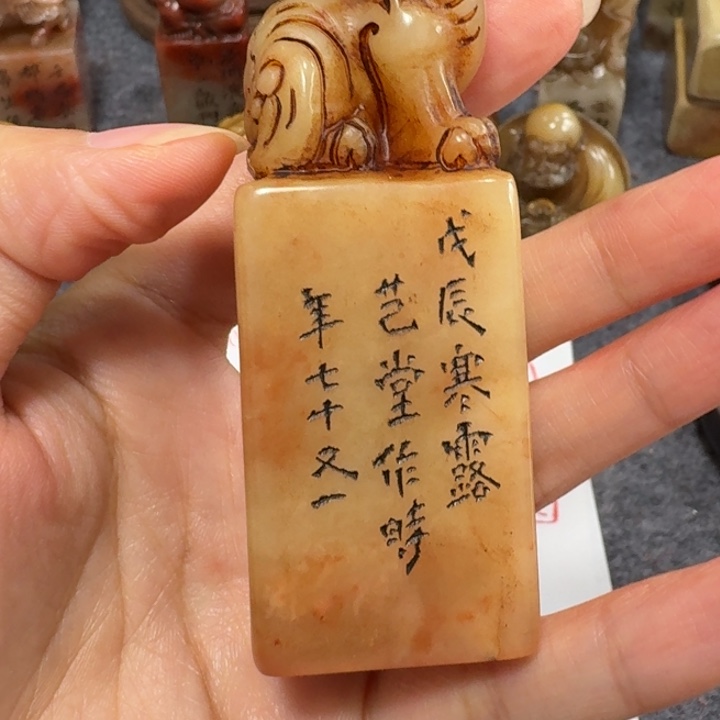 戊辰寒露
芑堂作時
年七十又一